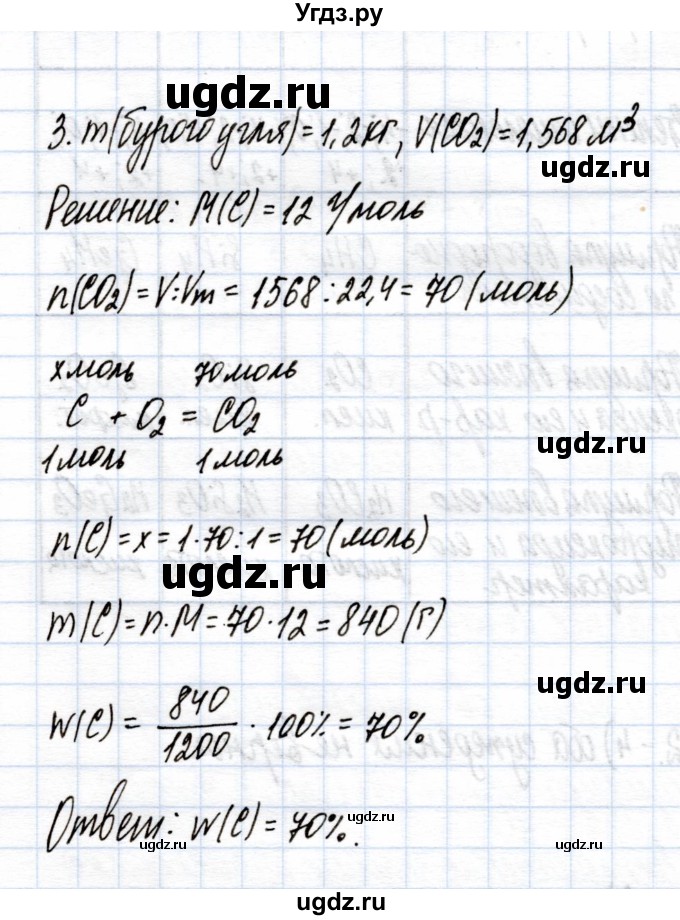 Угдз.ру
ugdz.ru
3. m(бурого угля)=1,2кг, V(CO₂)=1,568м³
ugdz.ru
Решение: M(C)=12 г/моль
n(CO₂)=V:Vm=1568:22,4=70(моль)
x моль 70моль
C + O₂ = CO₂
ugdz.ru
1моль 1моль
n(C)=x=1·70:1=70(моль)
ugdz.ru
m(C)=n·M=70·12=840(г)
ugdz.ru
w(C) = 840/1200 · 100% = 70%
Ответ: w(C)=70%.
ugdz.ru ugdz.ru ugdz.ru
ugdz.ru